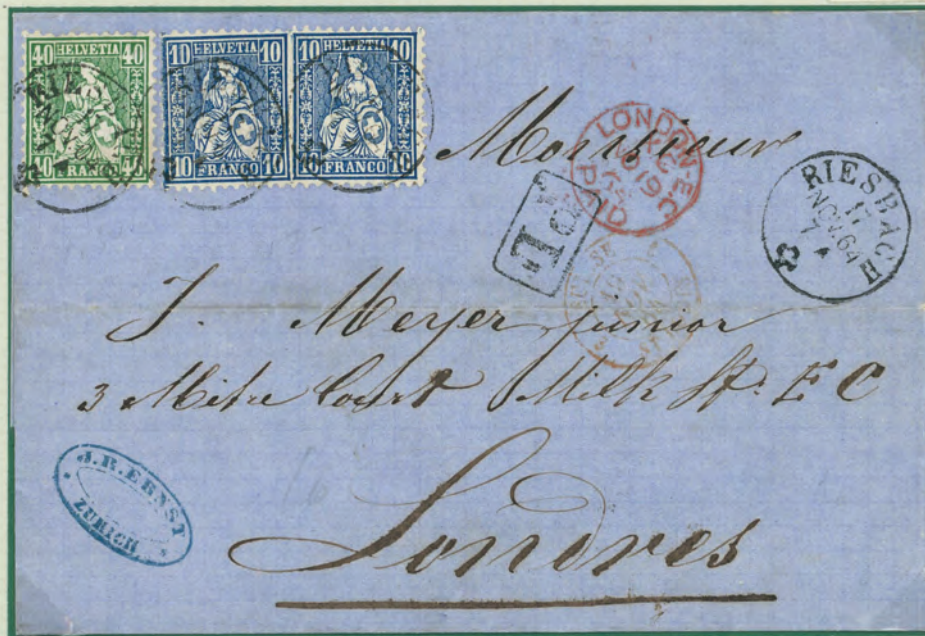 40 HELVETIA 40
40 FRANCO 40
10 HELVETIA 10
10 FRANCO 10
10 HELVETIA 10
10 FRANCO 10
Monsieur
LONDON·E.C
PAID
19
RIESBACH
17
NOV. 64
P.D.
J. Meyer junior
3 Mitre Court Milk St. E C
Londres
J.R. ERNST
ZÜRICH